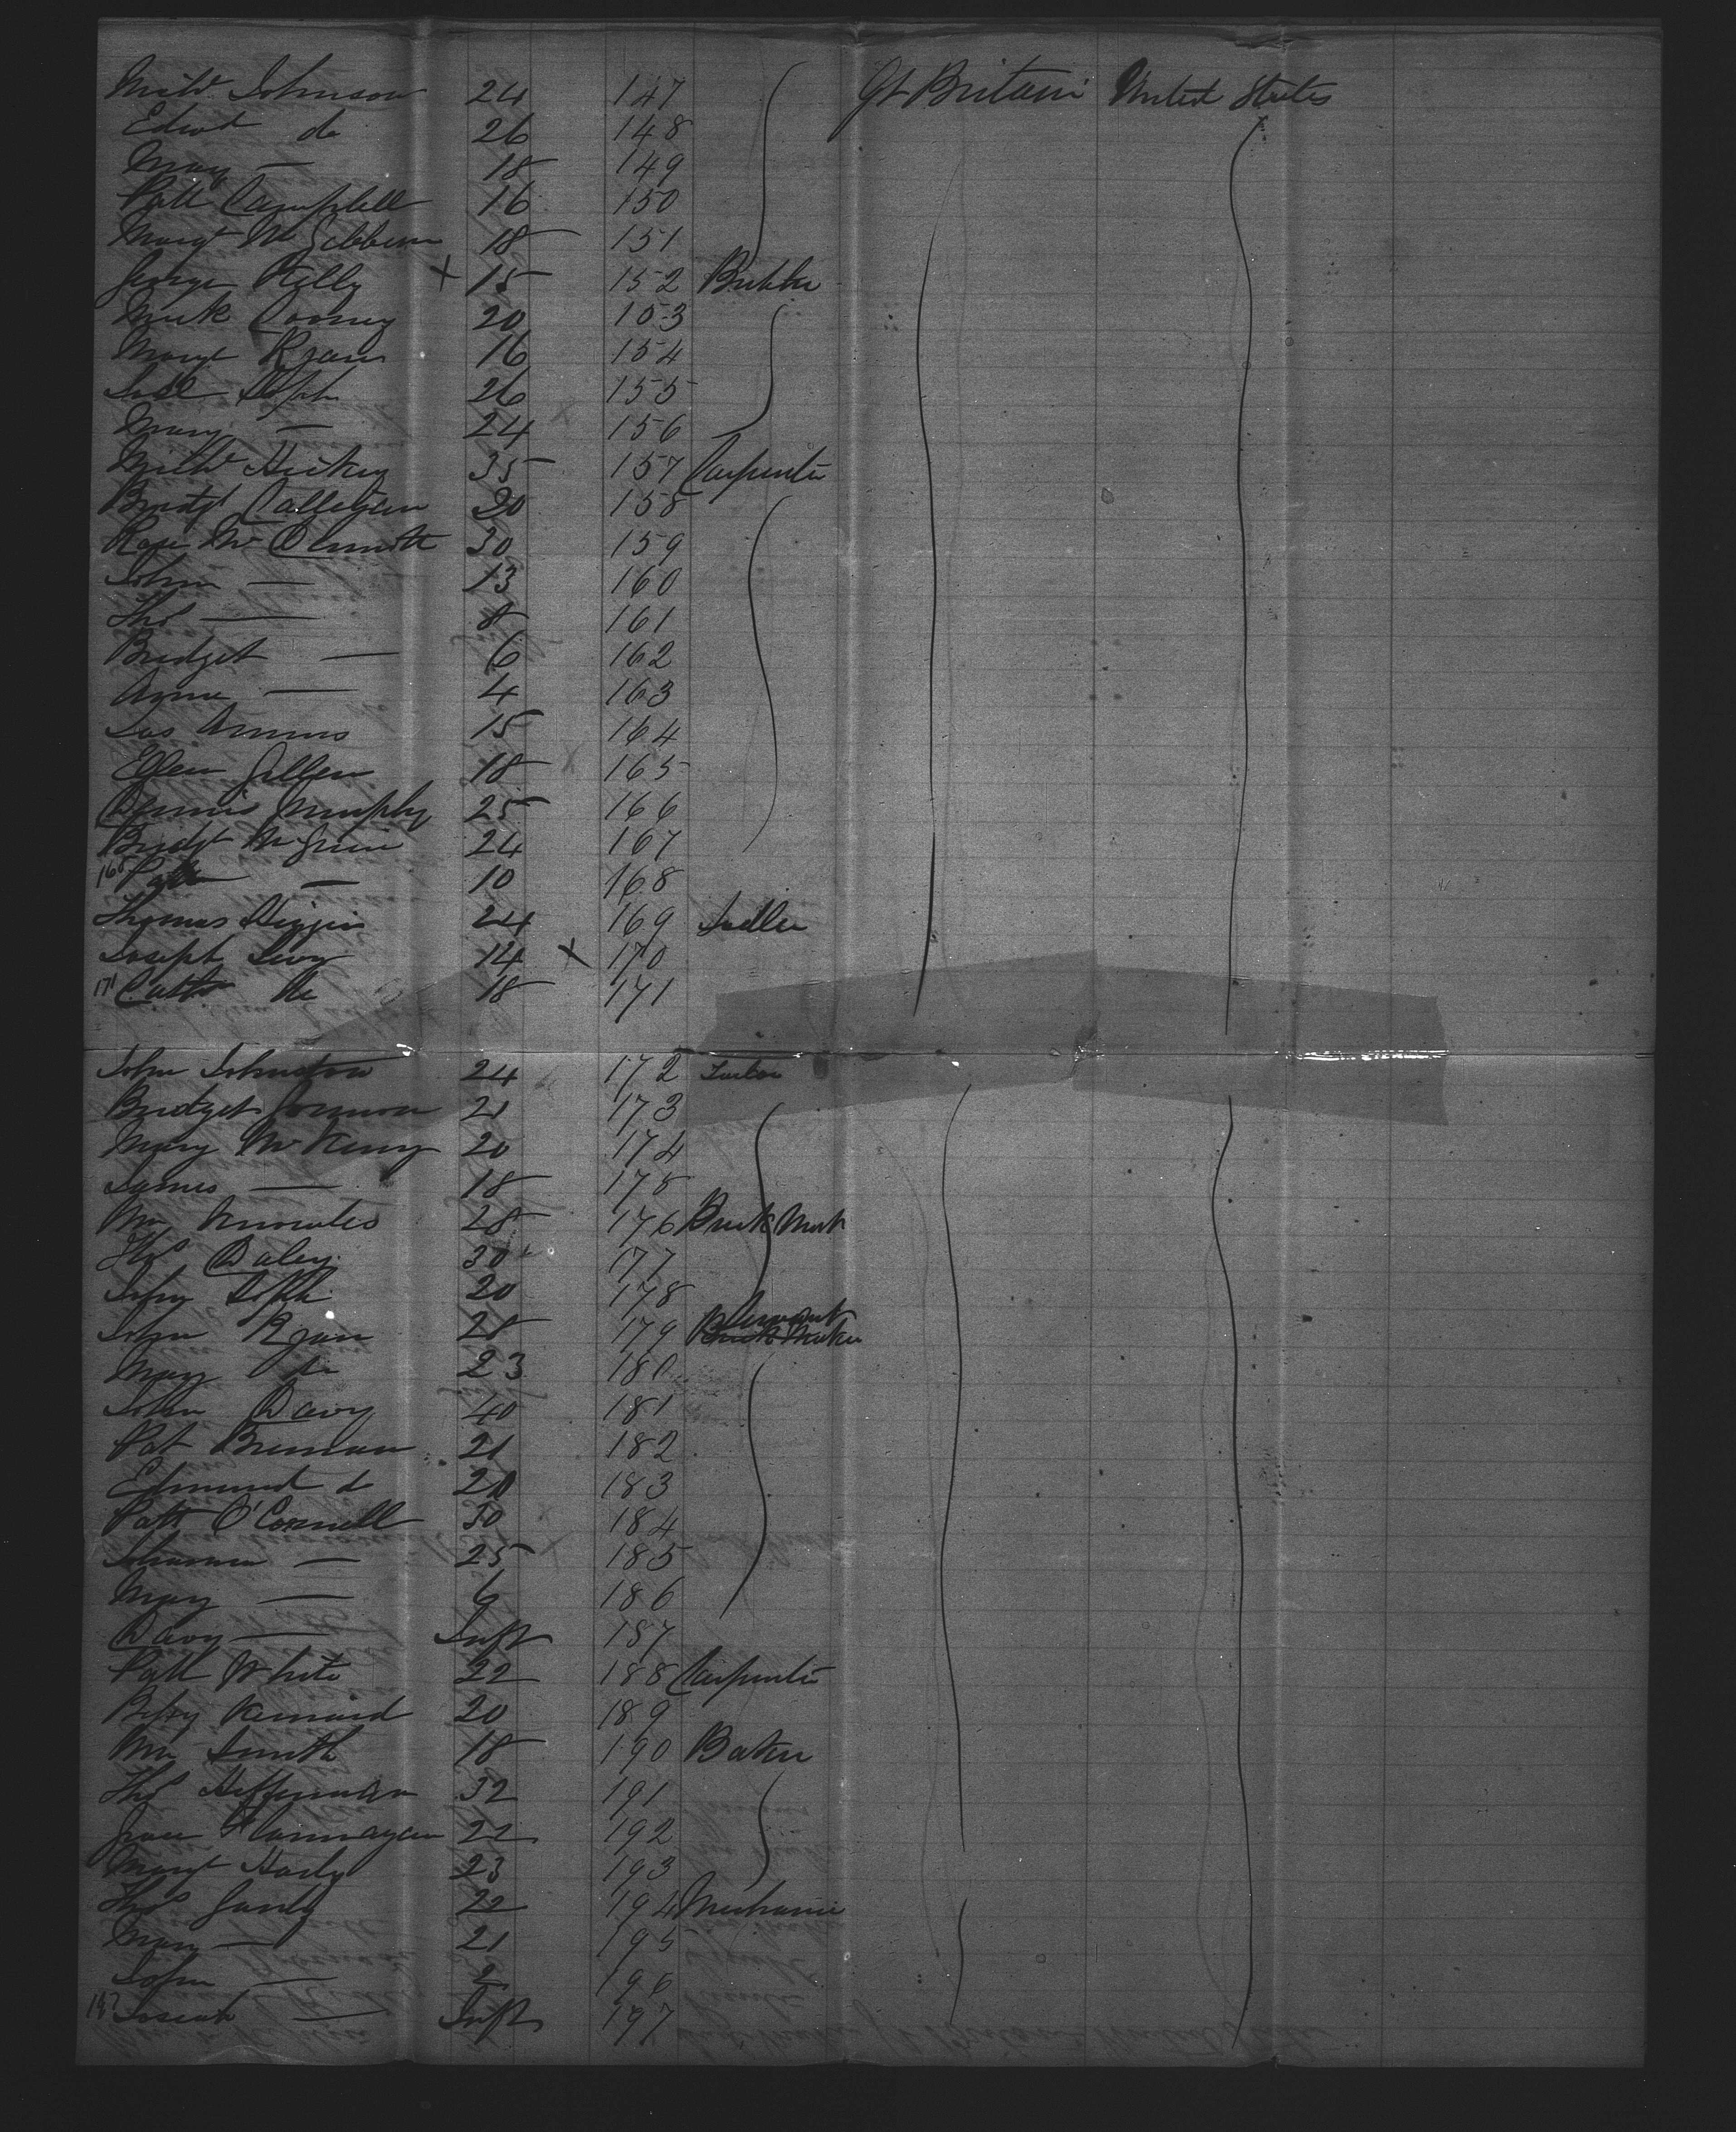 Mich<sup>l</sup> Johnson 24 147 Gt Britain United States
Edwd do 26 148
Mary — 18 149
Patk Campbell 16 150
Margt McGibbon 18 151
George Kelly × 15 152 Butcher
Mick Cooney 20 153
Margt Ryan 16 154
26 155
Mary — 24 156
Hickey 35 157 Carpenter
Bridgt Callighan 20 158
Rose Mc 30 159
John — 13 160
Thos — 8 161
Bridget — 6 162
Anna — 4 163
15 164
Ellen Gillen 18 165
Dennis Murphy 25 166
Bridgt McGuire 24 167
168 Patk — 10 168
Thomas Higgins 24 169 Sadler
Joseph Levy 14 × 170
171 Cath do 18 171
John Johnston 24 172
Bridget Gormon 21 173
Mary McKenny 20 174
James — 18 175
Wm Knowles 28 176 Brick Mak
Thos Daley 30 177
20 178
John Ryan 28 179 Servant Brick Maker
Mary do 23 180
John Davy 40 181
Pat Brennan 21 182
Edmund do 20 183
Patk O'Connell 30 184
Johanna — 25 185
Mary — 6 186
Davy — Inft 187
Patk White 22 188 Carpenter
Betsy Kennard 20 189
Wm Smith 18 190 Baker
Thos Heffernan 32 191
Flannagan 22 192
Margt Harly 23 193
Thos Ganly 22 194 Mechanic
Mary — 21 195
John — 2 196
197 Joseph — Inft 197